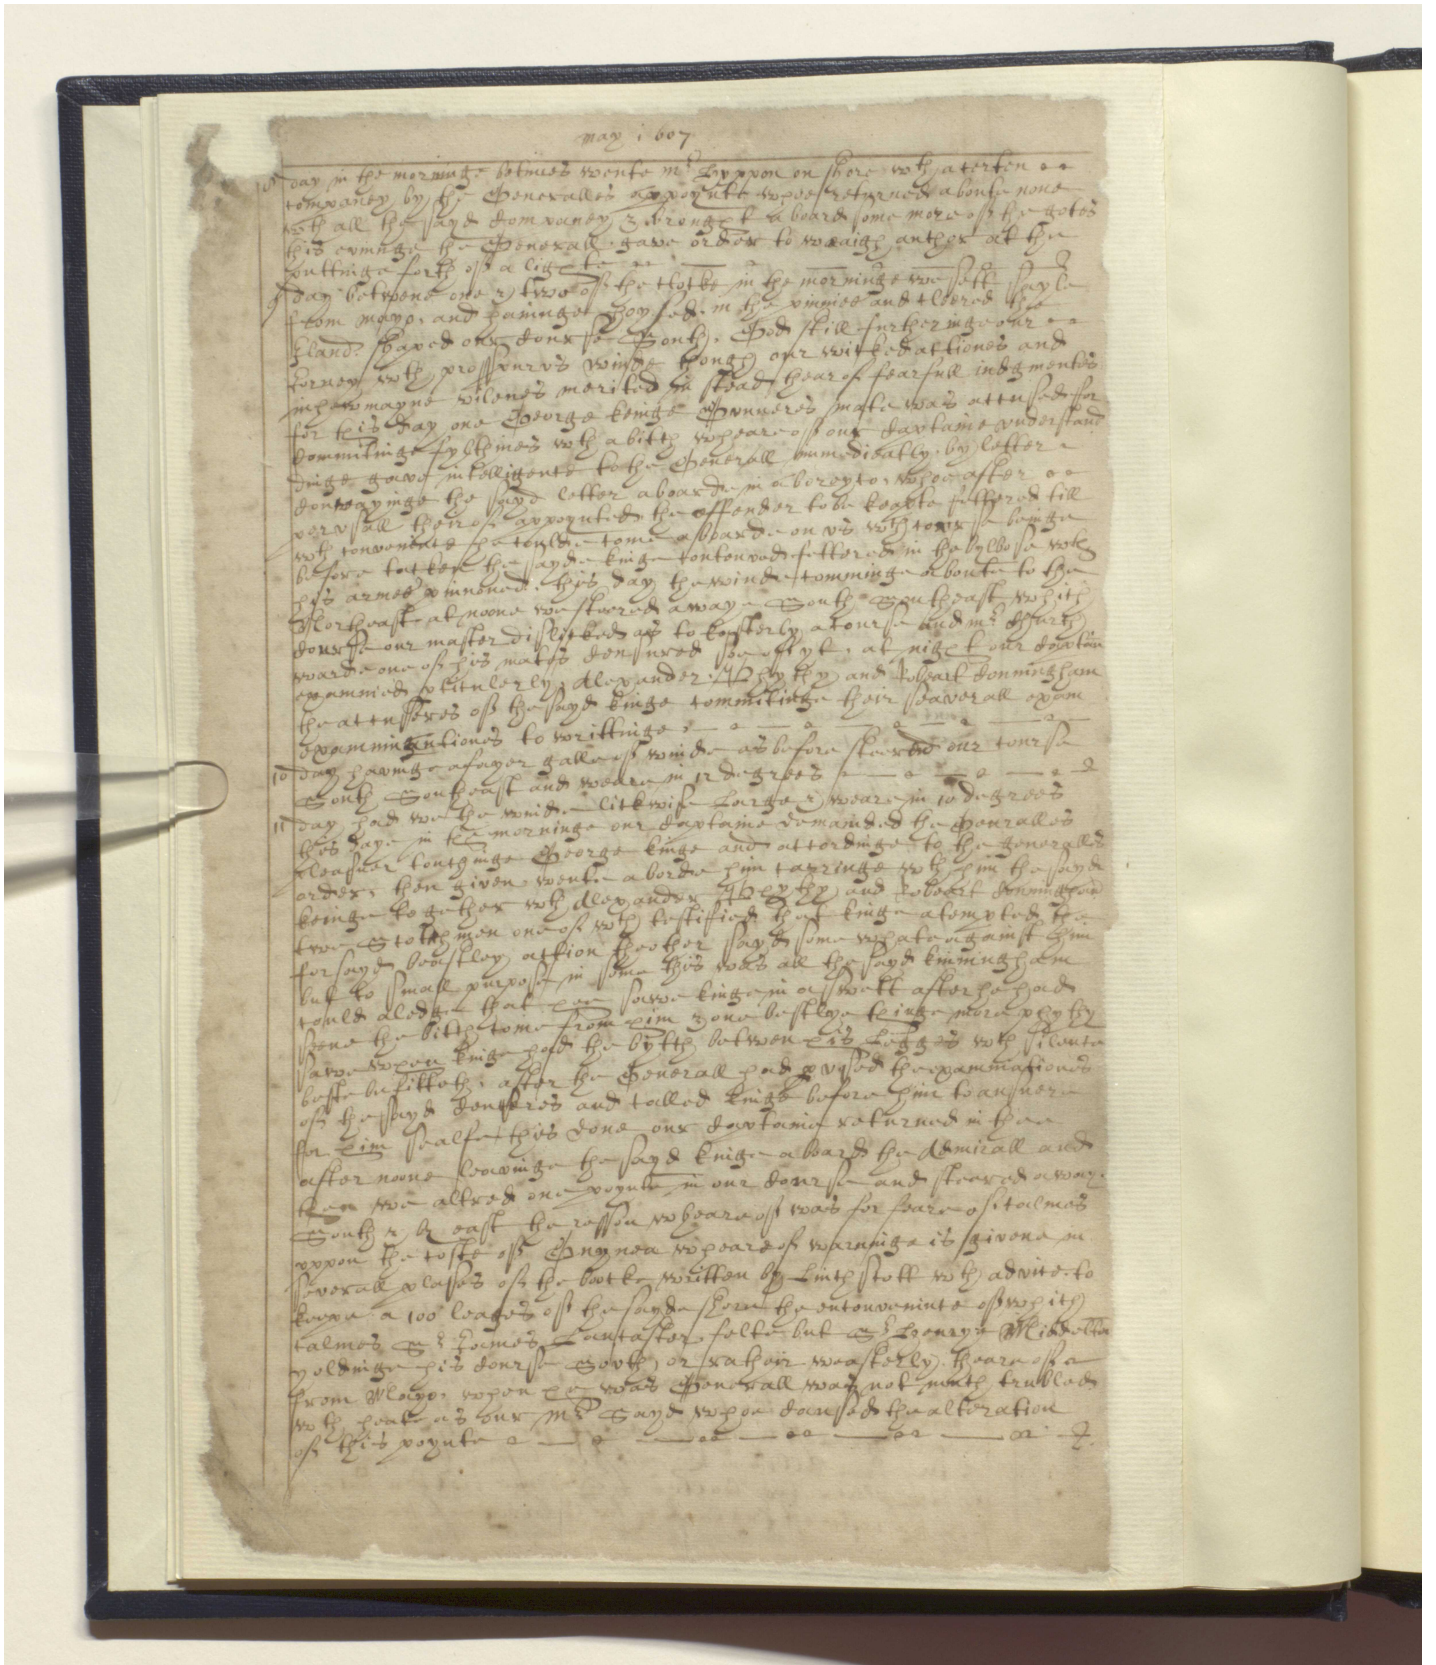 may 1607
8 day in the morninge betimes wente mr Lyppon on shore wth a certen
companey by the Generalles appoynte whoe returned aboute none
wth all the sayd Companey & brought aboard some more of the gotes
this eveninge the Generall gave order to waigh anchor at the
puttinge forth off a lighte
9 day betwene one & two of the Clocke in the morninge we sett sayle
from mayo, and havinge hoysed in the pinnice and cleered the
Iland shaped our Course South, God still furtheringe our
Iorney wth prosspurvs winde though our wicked actiones and
inhewmayne vilenes merited in stead thear of fearfull iudgmentes
for this day one George kinge Gunneres mate was accused for
Committinge fylthines wth a bitch wheare off our Captaine vnderstand
dinge gave intelligence to the Generall immediatly by letter
Convayinge the sayd letter aboarde in a boreyco, whoe after
pervsall therof appoynted the offender to be keapte fettered till
wth convenience he coulde come aboarde on vs wth course beinge
before tacken the sayde kinge contenved fettered in the bylbose wth
his armes pinnoned. this day the winde comminge aboute to the
Northeast at noone we steered awaye South Southeast which
Course our master dislicked as to easterly a course and mr
warde one of his mates Censured soe off yt, at night our Captain
examined perticulerly Alexander and Robeart Conningham
the accusseres off the sayd kinge committinge their seaverall exam
examminationes to writtinge
10 day havinge a fayer galle off winde as before steered our course
South Southeast and weare in 12 degrees
11 day had we the winde lickwise Large & weare in 10 degrees
this daye in the morninge our Captaine demanded the Generalles
pleasuer touchinge George kinge and accordinge to the generalles
order then given wente aborde him carringe wth him the sayd
keinge together wth Alexander and Robeart Conningham
two Scotchmen one of wch testified that kinge atempted the
forsayd beastley action the other sayd some whate against him
but to small purpose in some this was all the sayd kinningham
could aledge that hee sawe kinge in a swett after he had
seene the bitch come from him & one bestlye thinge more
sawe when kinge had the bytch betwen his Legges wch silence
beste befitteth, after the Generall had pervsed the examinationes
off the sayd and called kinge before him to answere
for him sealfe this done our Captaine returned in thee
after noone leavinge the sayd kinge aboard the Admirall and
then we altred one poynte in our Course and steared away
South & by east the resson wheare off was for feare of calmes
vppon the coste off Gnynea wheare of warninge is givene in
severall plases of the boocke written by Linchscott wth advice to
keepe a 100 leages off the sayde shore the enconvenince off which
calmes Sr Iames Lancaster felte but Sr Henrye Middelton
holdinge his Course South or rather weasterly theare off
from Mayo, when he was Generall was not mutch trubled
wth heate as our mr Sayd whoe Caused the alteration
of this poynte